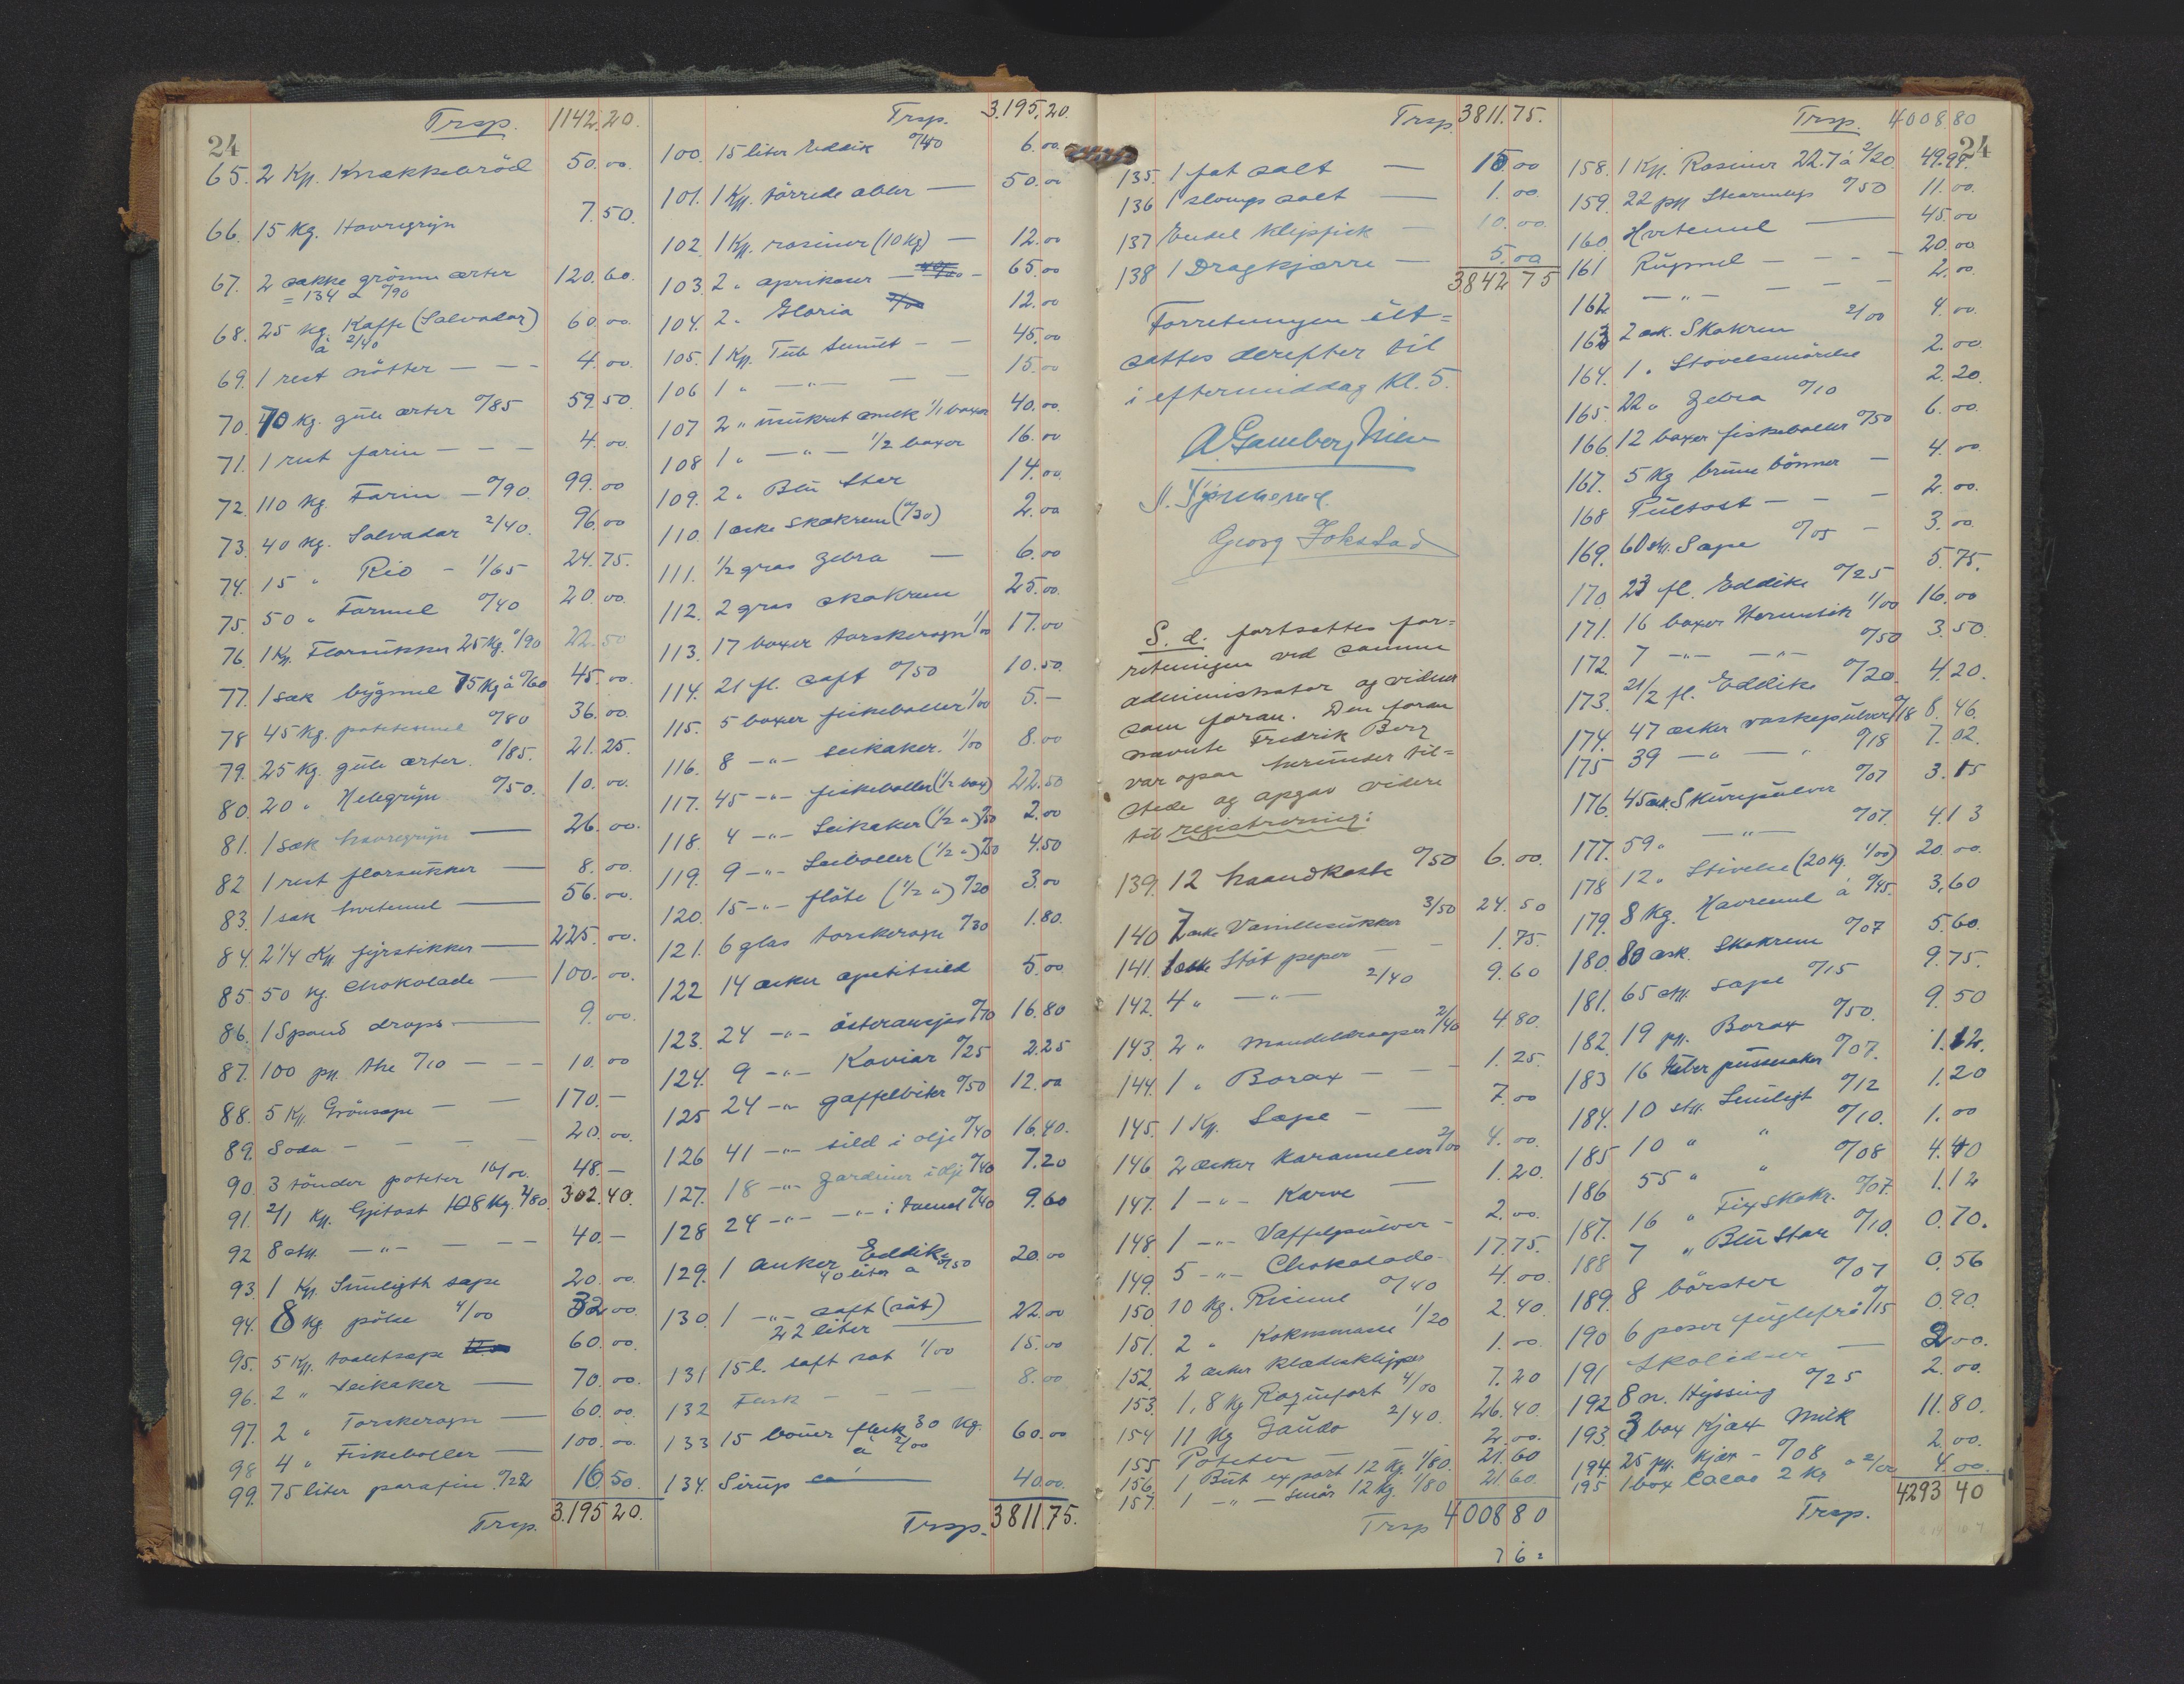 24
Trsp. 1142.20.
65. 2 Kp. Knækkebröd 50.00.
66. 15 kg. Havregryn 7.50.
67. 2 sække grönne ærter 120.60.
= 134 à 0/90
68. 25 kg. Kaffe (Salvador) 60.00.
à 2/40
69. 1 rest nötter — - - 4.00.
70. 70 kg. gule ærter 0/85 59.50
71. 1 rest farin — - - 4.00.
72. 110 kg. Farin — 0/90. 99.00
73. 40 kg. Salvador 2/40. 96.00
74. 15 " Rio - 1/65 24.75.
75. 50 " Formel 0/40 20.00.
76. 1 Kp. Florsukker 25 kg. 0/90 22.50
77. 1 sæk bygmel 75 kg à 0/60 45.00.
78 45 kg. potetesmel 0/80 36.00.
79. 25 kg. gule ærter. 0/85. 21.25.
80. 20 " Helegryn 0/50. 10.00.
81. 1 sæk havregryn — 26.00.
82. 1 rest florsukker — 8.00.
83. 1 sæk hvetemel — 56.00.
84. 2 1/4 Kp fyrstikker — 225.00.
85 50 kg. Chokolade — 100.00.
86. 1 Spand drops. — 9.00.
87. 100 pp. the 0/10 — - - 10.00
88. 5 Kp. Grönsape — — 170.—
89. Soda - - - - 20.00.
90. 3 tönder poteter 16/00. 48.—
91. 2/1 Kp. Gjetost 108 kg. 2/80. 302.40.
92 8 stk. —"— - - 40.—
93. 1 Kp. Sunligth sape 20.00.
94. 8 kg pölse 4/00 32.00.
95. 5 Kp. toaletsape 60.00.
96. 2 " Seikaker — 70.00.
97. 2 " Torskerogn — 60.00.
98 4 " Fiskeboller — 100.00.
99. 75 liter parafin 0/22 16.50.
Trsp. 3.195.20.
Trsp. 3.195.20.
100. 15 liter Eddik 0/40 6.00.
101. 1 Kp. törrede abler — 50.00
102. 1 Kp. rosiner (10 kg) — 12.00
103. 2 " aprikoser — 65.00
104. 2 " Gloria 12.00
105. 1 Kp. Tub - - 45.00
106 1 " —"— — — 15.00
107 2 " usukret melk 1/1 boxer 40.00.
108 1 " —"— 1/2 boxer 16.00
109. 2 " Blu Star 14.00
110. 1 æske skokrem (0/30) 2.00
111. 1/2 gros Zebra — 6.00
112. 2 gros skokrem 25.00.
113. 17 boxer torskerogn 1/00 17.00
114. 21 fl. saft 0/50 10.50.
115. 5 boxer fiskeboller 1/00 5.—
116. 8 —"— seikaker. 1/00 8.00
117. 45 —"— fiskeboller (1/2 box) 22.50
118. 4 —"— Seikaker (1/2 ") 0/50 2.00
119. 9 —"— Seiboller (1/2 ") 0/50 4.50
120. 15 —"— flöte (1/2 ") 0/20 3.00
121. 6 glas torskerogn 0/30 1.80.
122 14 æsker apetitsild 5.00
123. 24 —"— östers 0/70 16.80
124. 9 —"— Kaviar 0/25 2.25
125 24 —"— gaffelbiter 0/50 12.00
126 41 —"— sild i olje 0/40 16.40.
127. 18 —"— Sardiner i olje 0/40 7.20
128 24 —"— —"— i tomat 0/40 9.60
129. 1 anker Eddike 20.00
40 liter à 0/50
130. 1 —"— saft (söt) 22.00
22 liter —
131 15 l. saft söt 1/00 15.00
132 Fisk - - - - 8.00
133 15 böuer flesk 30 kg. 60.00
à 2/00
134. Sirup — 40.00.
Trsp. 3811.75.
Trsp. 3811.75.
135. 1 fat salt — 15.00
136 1 slumps salt — 1.00.
137 Endel klipfisk — 10.00.
138 1 Dragkjærre — 5.00
3842 75
Forretningen ut=
sattes derefter til
i eftermiddag kl. 5.
Georg Fokstad
S. d. fortsattes for=
retningen ved samme
administrator og vidner
som foran. Den foran
nævnte Fredrik Berg
var ogsaa herunder til=
stede og opgav videre
til registrering:
139. 12 haandkoste 0/50 6.00.
140 7 æske Vanillesukker 3/50 24.50
141. 1 æske Stöt peper — - 1.75.
142. 4 " —"— 2/40 9.60
143. 2 " Mandeldraaper 2/40 4.80.
144. 1 " Borax - - - 1.25.
145. 1 Kp. Sæpe - — 7.00
146 2 æsker Karameller 2/00 4.00.
147. 1 —"— Karve — 1.20.
148. 1 —"— Vaffelpulver - 2.00.
149. 5 —"— Chokolade 17.75.
150. 10 kg. Rismel 0/40 4.00.
151. 2 " Kokosmasse 1/20 2.40.
152. 2 æsker klædesklyper 1.00.
153. 1,8 kg Roqufort 4/00 7.20
154 11 kg Gauda 2/40. 26.40.
155 Poteter 2.00.
156. 1 But export 12 kg. 1/80. 21.60
157. 1 —"— smör 12 kg. 1/80 21.60.
Trsp 4008 80
Trsp. 4008.80
24
158. 1 Kp. Rosiner 22.7 à 2/20 49.94.
159. 22 pp Stearinlys 0/50 11.00.
160. Hvetemel — 45.00
161 Rugmel - - - - 20.00
162 —"— — - - 2.00.
163 2 æsk. Skokrem 2/00 4.00.
164. 1 " Stövelsmörelse 2.00.
165. 22 " Zebra 0/10 2.20.
166. 12 boxer fiskeboller 0/50 6.00.
167. 5 kg brune bönner — 4.00.
168 Pultost — - - 2.00.
169. 60 stk. Sæpe 0/05 - 3.00.
170. 23 fl. Eddike 0/25 5.75.
171. 16 boxer Hermetik 1/00 16.00
172. 7 —"— —"— 0/50 3.50.
173. 21/2 fl. Eddike 0/20. 4.20.
174. 47 æsker vaskepulver 0/18 8.46.
175 39 —"— —"— 0/18 7.02.
176. 45 æsk. Skurepulver 0/07 3.15
177. 59 " —"— 0/07. 4.13
178 12 " Stivelse (20 kg. 1/00) 20.00.
179. 8 kg. Havremel à 0/45. 3.60
180. 80 æsk. Skokrem 0/07 5.60.
181. 65 stk. sape 0/15 9.75.
182. 19 pp. Borax 0/50. 9.50
183 16 pussesaker 0/07. 1.12.
184. 10 stk. Sunligt 0/12 1.20
185 10 " " 0/10. 1.00
186 55 " " 0/08 4.40
187. 16 " Fix skokr. 0/07. 1.12
188 7 " Blu Star 0/10. 0.70.
189. 8 börster 0/07 0.56
190 6 poser fuglefrö 0/15 0.90.
191 Skolidser — 2.00.
192 8 n. Hyssing 0/25 2.00.
193. 3 box Kjæx Milk 11.80.
194. 25 pp. Kjæx - 0/08 2.00.
195 1 box Cacao 2 kg à 2/00 4.00.
4293 40
Trsp.